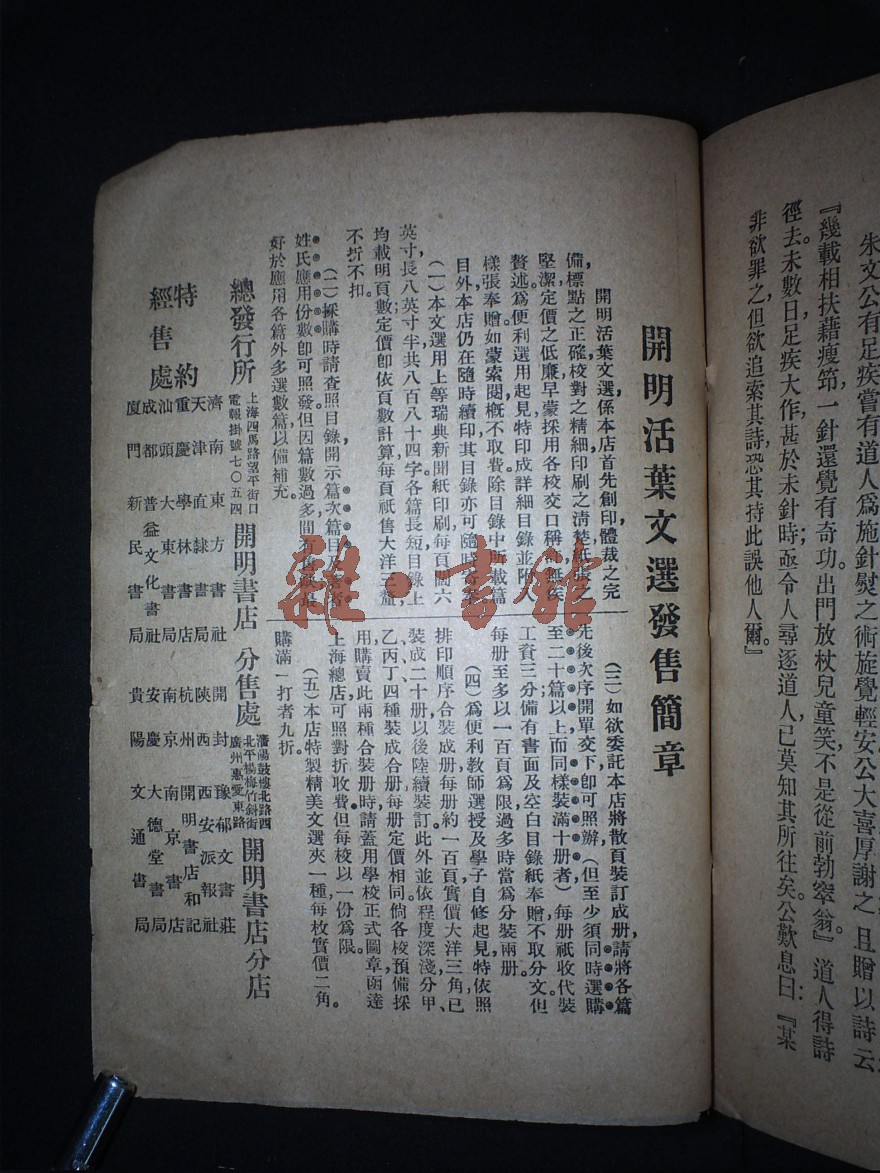 朱文公有足疾嘗有道人爲施針熨之術旋覺輕安公大喜厚謝之且贈以詩云
『幾載相扶藉瘦筇一針還覺有奇功出門放杖兒童笑不是從前勃窣翁。』道人得詩
徑去。未數日足疾大作，甚於未針時；亟令人尋逐道人，已莫知其所往矣。公歎息曰：『某
非欲罪之，但欲追索其詩，恐其持此誤他人爾。』
開明活葉文選發售簡章
開明活葉文選係本店首先創印，體裁之完
備，標點之正確，校對之精細，印刷之淸楚，紙張之
堅潔，定價之低廉，早蒙採用各校交口稱許，無俟
贅述。爲便利選用起見，特印成詳細目錄，並附入
樣張奉贈，如蒙索閱，槪不取費。除目錄中所載篇
目外，本店仍在隨時續印，其目錄亦可隨時寄奉
（一）本文選用上等瑞典新聞紙印刷，每頁闊六
英寸，長八英寸半，共八百八十四字，各篇長短，目錄上
均載明頁數，定價卽依頁數計算，每頁祗售大洋三釐，
不折不扣。
（二）採購時請查照目錄，開示篇次篇目及著者
姓氏應用份數，卽可照發。但因篇數過多，間有售缺，最
好於應用各篇外，多選數篇，以備補充。
（三）如欲委託本店將散頁裝訂成册，請將各篇
先後次序開單交下，卽可照辦，（但至少須同時選購
至二十篇以上而同樣裝滿十册者）每册祗收代裝
工資三分；備有書面及空白目錄紙奉贈，不取分文。但
每册至多以一百頁爲限，過多時當爲分裝兩册。
（四）爲便利教師選授及學子自修起見，特依照
排印順序，合裝成册，每册約一百頁，實價大洋三角，已
裝成二十册，以後陸續裝訂。此外並依程度深淺，分甲、
乙、丙、丁、四種，裝成合册，每册定價相同。倘各校預備採
用，購賣此兩種合裝册時，請蓋用學校正式圖章，函達
上海總店，可照對折收費，但每校以一份爲限。
（五）本店特製精美文選夾一種，每枚實價二角。
購滿一打者九折。
總發行所
上海四馬路望平街口
電報掛號七〇五四
開明書店
分售處
瀋陽鼓樓北路西
北平楊梅竹斜街
廣州惠愛東路
開明書店分店
特約
經售處
濟南東方書社
天津直隸書局
重慶學林書店
汕頭大東書局
成都普益文化書社
廈門新民書局
開封豫郁文書莊
陝西西安派報社
杭州開明書店和記
南京南京書店
安慶大德堂書局
貴陽文通書局
雜·書館